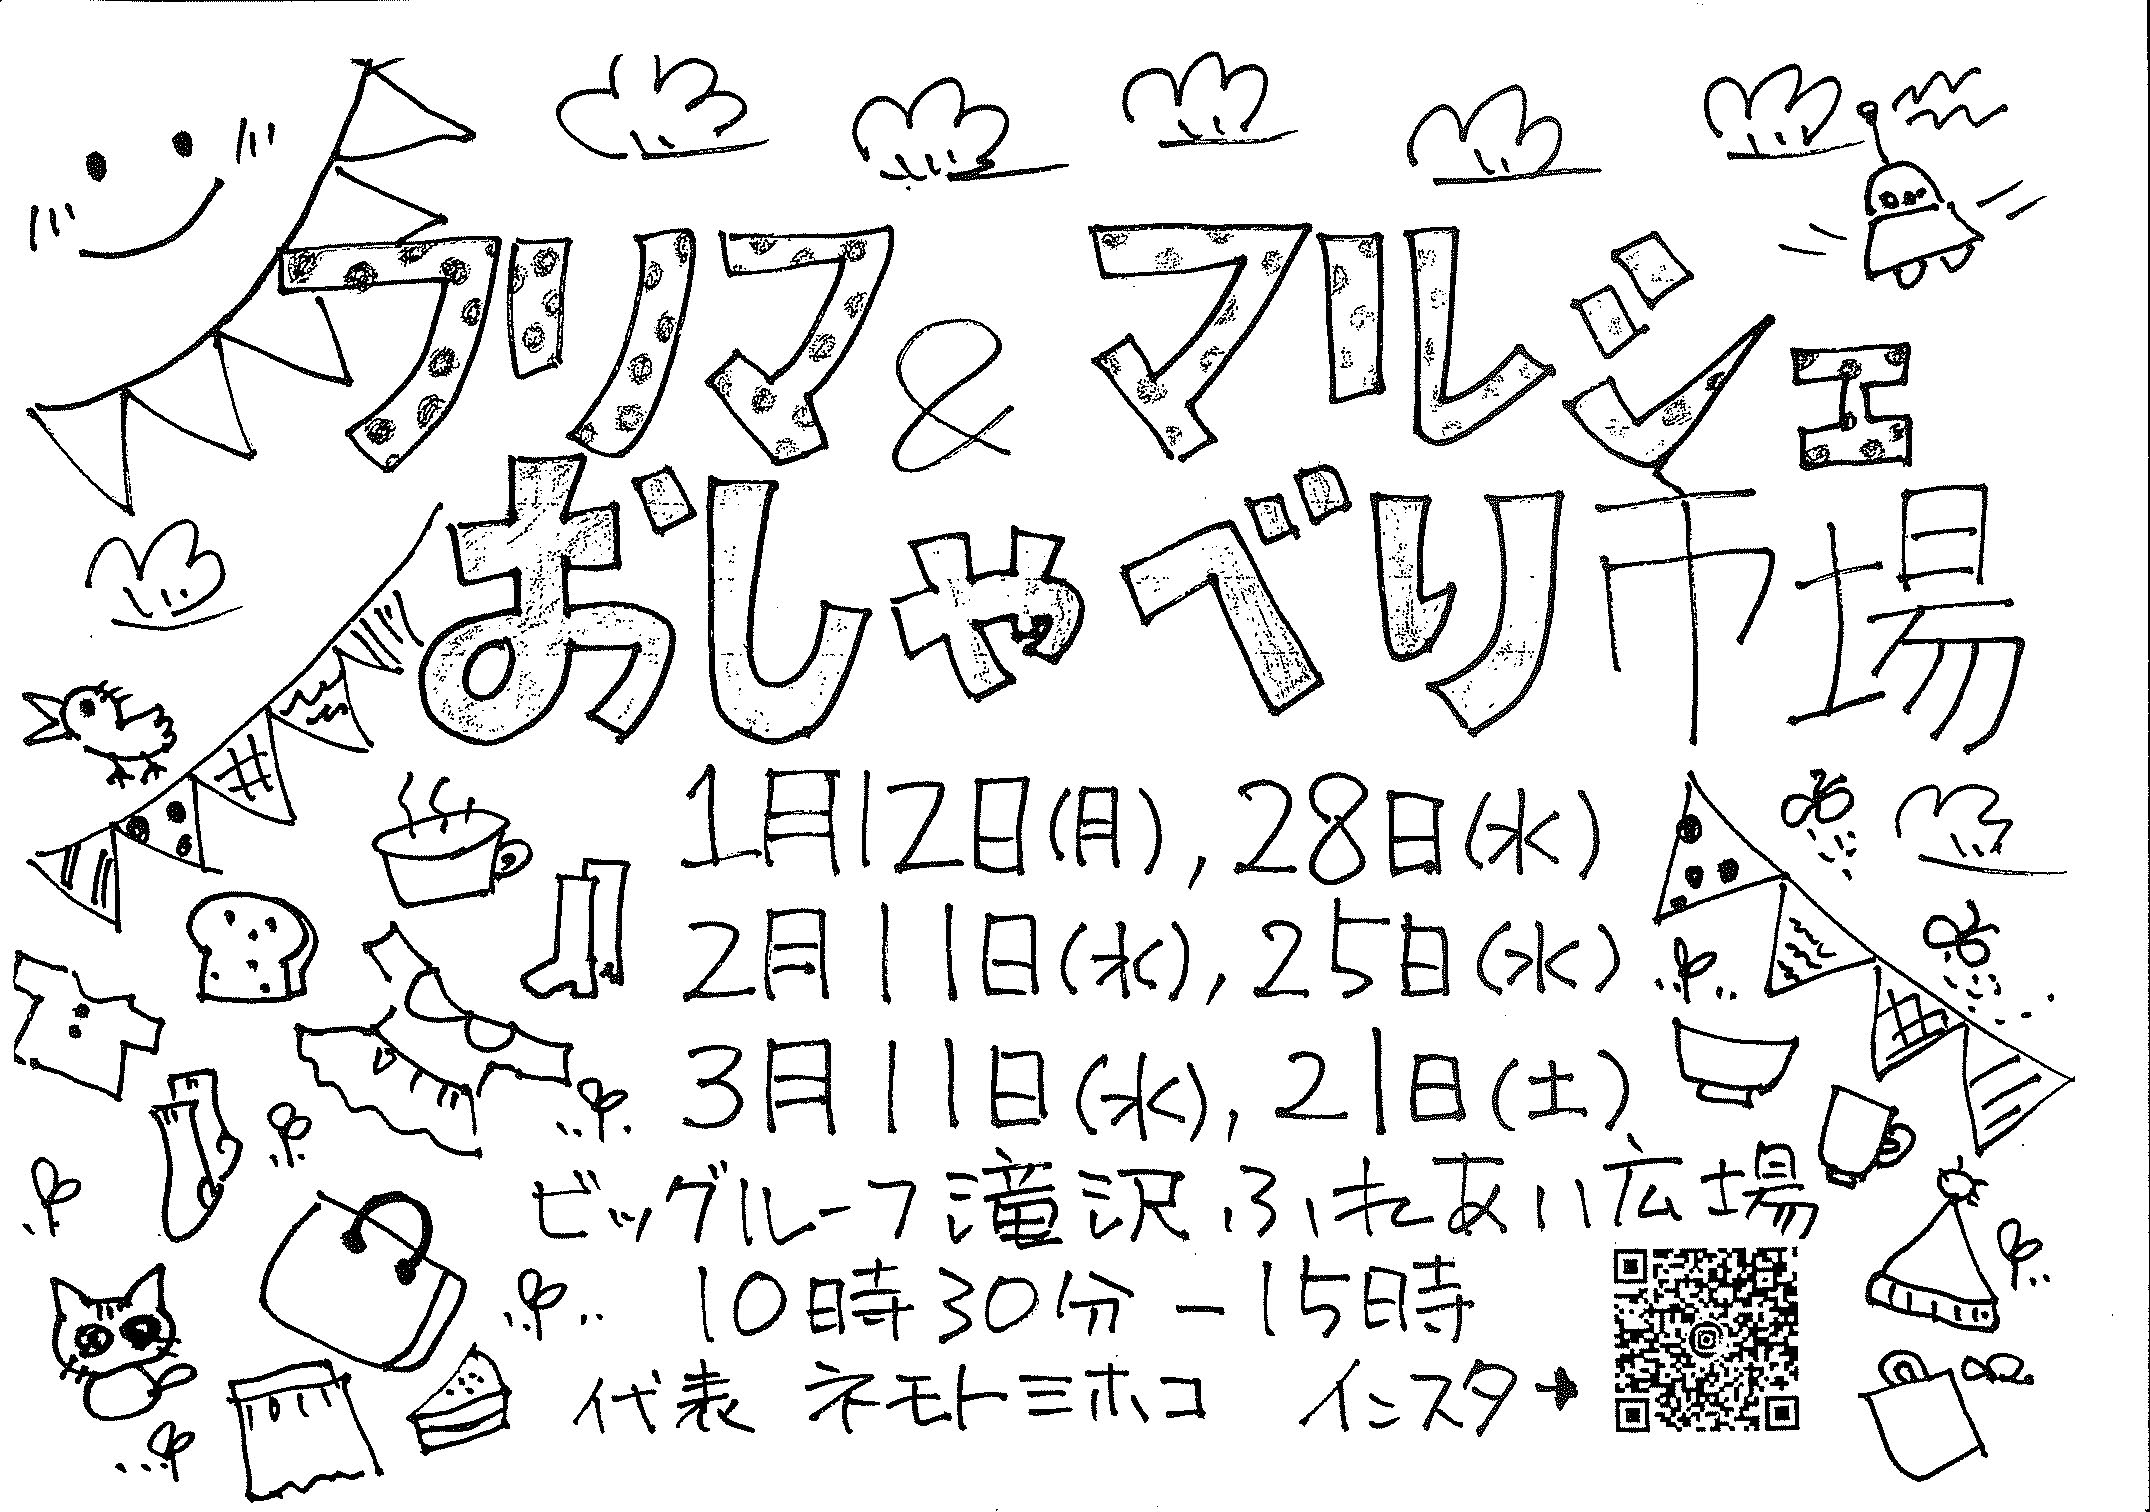 フリマ&マルシェ
おしゃべり市場
1月12日(月),28日(水)
2月11日(水),25日(水)
3月11日(水),21日(土)
ビッグルーフ滝沢ふれあい広場
10時30分-15時
代表 ネモトミホコ インスタ→